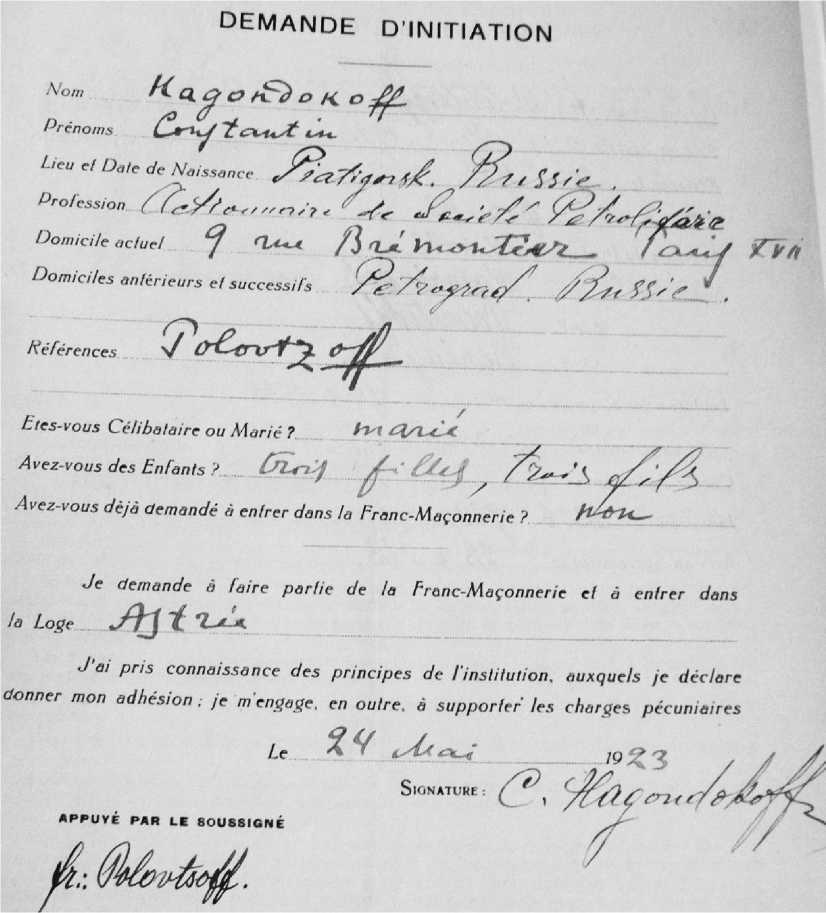 DEMANDE D'INITIATION
Nom Hagondokoff
Prénoms Constantin
Lieu et Date de Naissance Piatigorsk. Russie.
Profession Actionnaire de Société Petrolifère
Domicile actuel 9 rue Brémontier Paris XVII
Domiciles antérieurs et successifs Petrograd. Russie.
Références Polovtzoff
Etes-vous Célibataire ou Marié ? marié
Avez-vous des Enfants ? trois filles, trois fils
Avez-vous déjà demandé à entrer dans la Franc-Maçonnerie ? non
Je demande à faire partie de la Franc-Maçonnerie et à entrer dans
la Loge Astrée
J'ai pris connaissance des principes de l'institution, auxquels je déclare
donner mon adhésion ; je m'engage, en outre, à supporter les charges pécuniaires
Le 24 Mai 1923
SIGNATURE : C. Hagondokoff
APPUYÉ PAR LE SOUSSIGNÉ
fr.: Polovtsoff.